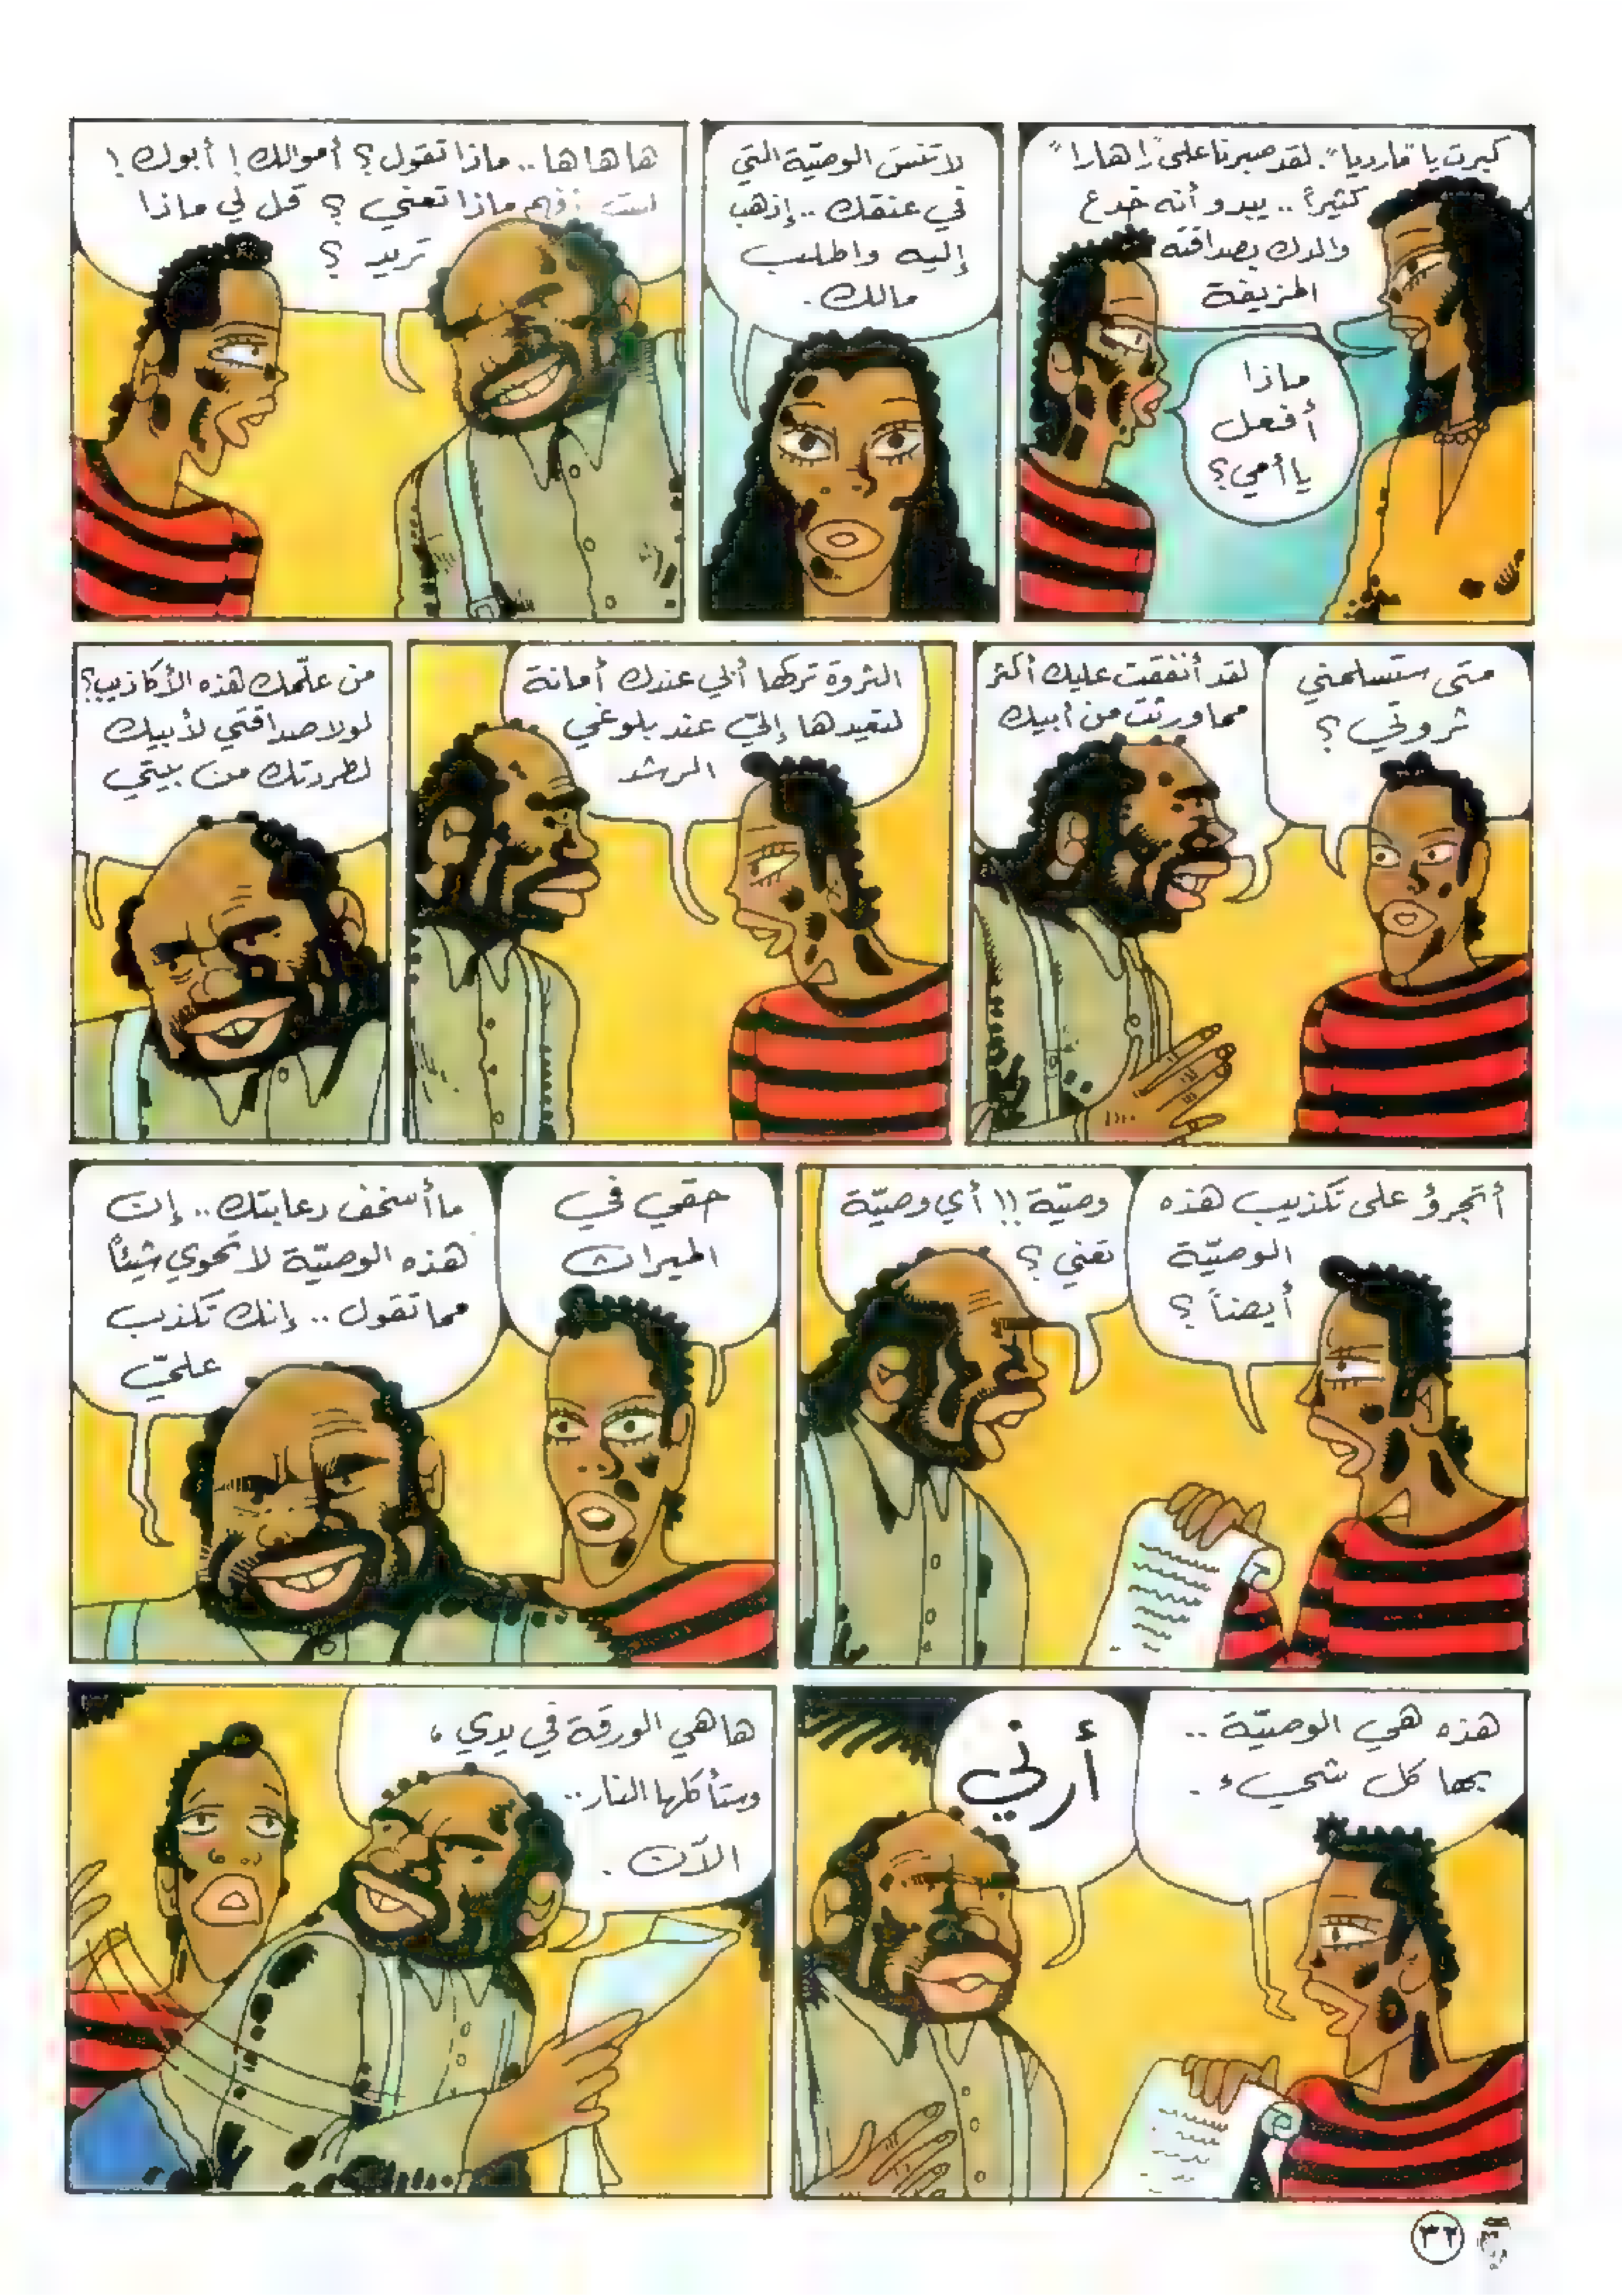 كبرت يا "مارديا". لقد صبرنا على "راهارا"
كثيراً .. يبدو أنه خدع
والدك بصداقته
المزيفة
ماذا
أفعل
يا أمي؟
لا تنسَ الوصيّة التي
في عنقك .. إذهب
إليه واطلب
مالك .
ها ها ها .. ماذا تقول؟ أموالك! أبوك!
لست أفهم ماذا تعني؟ قل لي ماذا
تريد؟
متى ستسلمني
ثروتي؟
لقد أنفقت عليك أكثر
مما ورثت من أبيك
الثروة تركها أبي عندك أمانة
لتعيدها إليّ عند بلوغي
الرشد
من علّمك هذه الأكاذيب؟
لولا صداقتي لأبيك
لطردتك من بيتي
أتجرؤ على تكذيب هذه
الوصيّة
أيضاً؟
وصيّة!! أي وصيّة
تعني؟
حقي في
الميراث
ما أسخف دعابتك .. إن
هذه الوصيّة لا تحوي شيئاً
مما تقول .. إنك تكذب
عليّ
هذه هي الوصيّة ..
بها كل شيء .
أرني
ها هي الورقة في يدي ،
وستأكلها النار ..
الآن .
٣٢